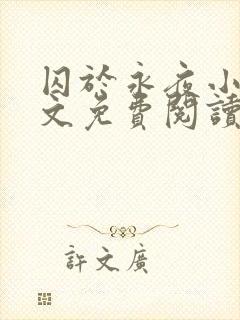 囚於永夜小
文免費閱讀
許文廣